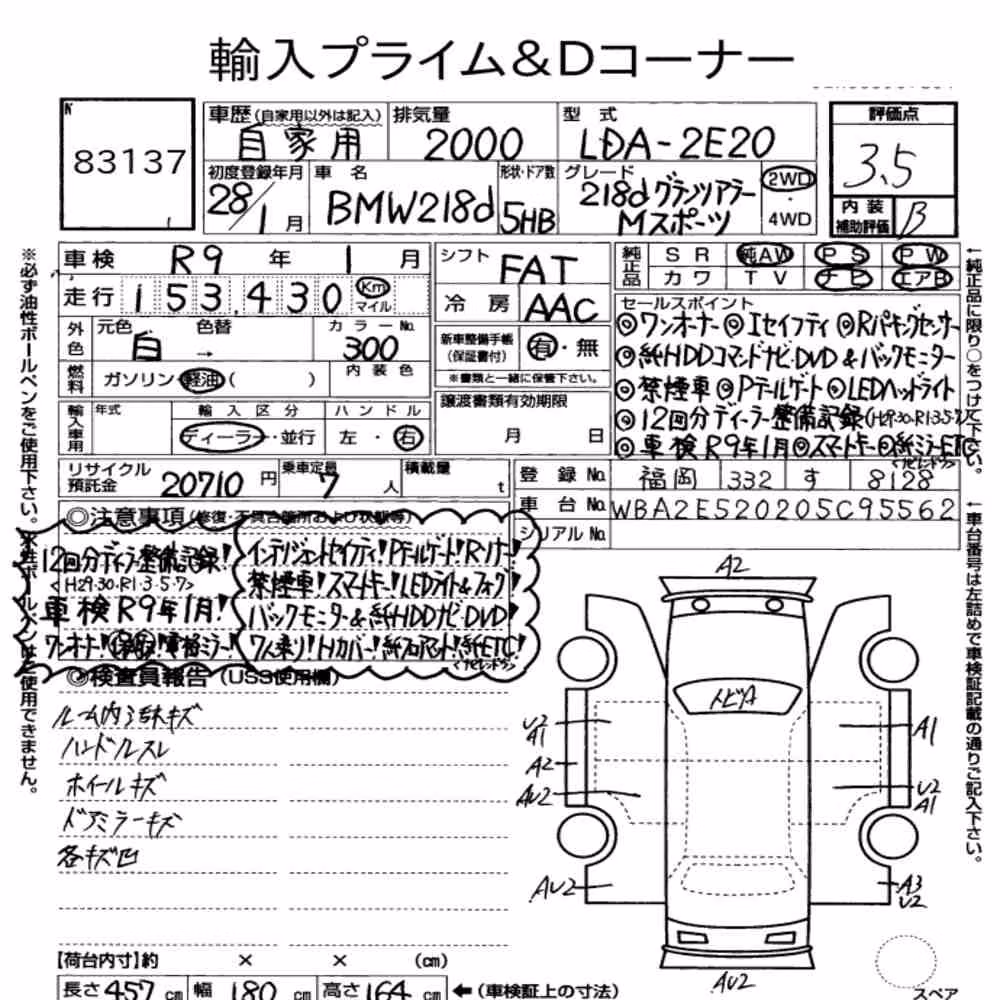 輸入プライム&Dコーナー
83137
車歴(自家用以外は記入) 自家用
排気量 2000
型式 LDA-2E20
評価点 3.5
初度登録年月 28/1月
車名 BMW218d
形状・ドア数 5HB
グレード 218dグランツアラー
Mスポーツ
2WD
・
4WD
内装
補助評価 B
車検 R9年1月
走行 153,430 Km
マイル
シフト FAT
冷房 AAC
純正品 SR 純AW PS PW
カワ TV ナビ エアB
外色 元色 白 色替 →
カラーNo. 300
内装色
燃料 ガソリン・軽油( )
新車整備手帳
(保証書付) 有・無
※書類と一緒に保管下さい。
セールスポイント
◎ワンオーナー◎Iセイフティ◎Rパーキングセンサー
◎純HDDコマンドナビ・DVD&バックモニター
◎禁煙車◎Pテールゲート◎LEDヘッドライト
◎12回分ディーラー整備記録(H29・30・R1・3・5・7)
◎車検R9年1月◎スマートキー◎純ミラーETC
輸入車用 年式
輸入区分 ディーラー・並行
ハンドル 左・右
譲渡書類有効期限
月 日
リサイクル
預託金 20710円
乗車定員 7人
積載量 t
登録No. 福岡 332 す 8128
車台No. WBA2E520205C95562
シリアルNo.
◎注意事項(修復・不具合箇所および状態等)
12回分ディーラー整備記録!
<H29・30・R1・3・5・7>
車検R9年1月!
ワンオーナー!
インテリジェントセイフティ!Pテールゲート!
禁煙車!スマートキー!LEDライト&フォグ!
バックモニター&純HDDナビ・DVD!
7人乗り!Hカバー!純フロアマット!純ETC!
◎検査員報告(USS使用欄)
ルーム内・荷キズ
ハンドルスレ
ホイールキズ
ドアミラーキズ
各キズ凹
A2
トビA
U2
A1
A2
AU2
AU2
A1
U2
A1
A3
U2
AU2
スペア
【荷台内寸】約 × × (cm)
長さ457cm 幅180cm 高さ164cm ←(車検証上の寸法)
※必ず油性ボールペンをご使用下さい。水性ボールペンはご使用できません。
←純正品に限り○をつけて下さい。
←車台番号は左詰めで車検証記載の通りご記入下さい。